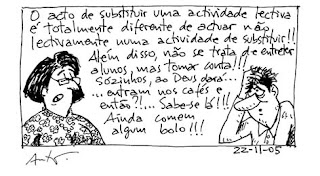 O acto de substituir uma actividade lectiva
é totalmente diferente de actuar não
lectivamente numa actividade de substituir!!
Além disso, não se trata de entreter
alunos, mas tomar conta!!!
Sozinhos, ao Deus dará...
...entram nos cafés e
então?!... Sabe-se lá!!!
Ainda comem
algum bolo!!!
22-11-05